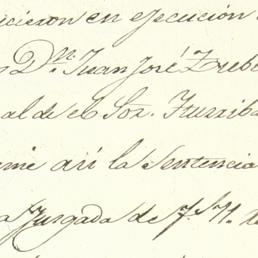 icieron en ejecucion
Dn. Juan José Zube
al de el Sor. Yturriba
me asi la sentencia
a Juzgada de 7. 11. de